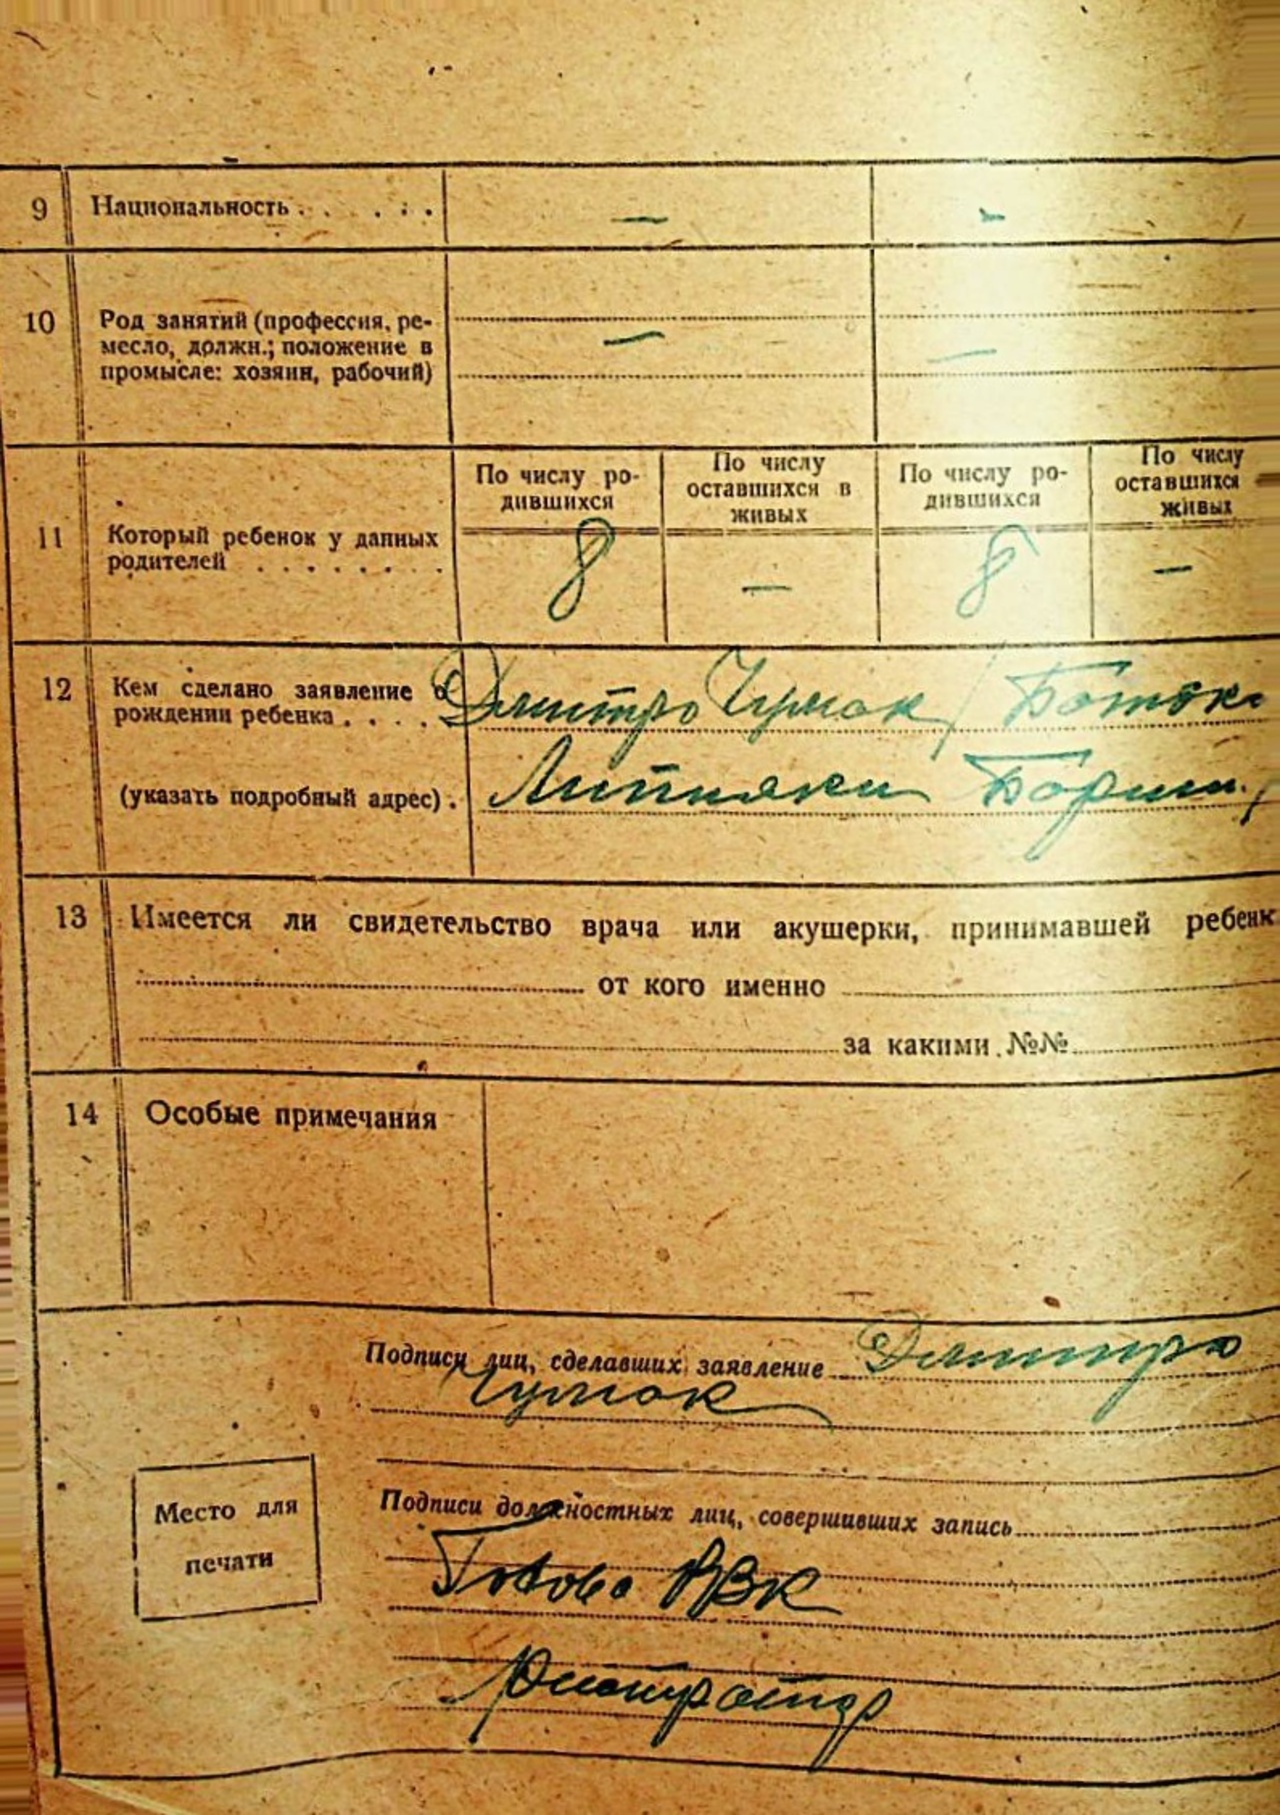 9 Национальность . . . . . . — —
10 Род занятий (профессия, ре-
месло, должн.; положение в
промысле: хозяин, рабочий) — —
По числу ро-
дившихся
По числу
оставшихся в
живых
По числу ро-
дившихся
По числу
оставшихся
живых
11 Который ребенок у данных
родителей . . . . . . . . 8 — 8 —
12 Кем сделано заявление о
рождении ребенка . . . . Дмитро Чумак / Батько
(указать подробный адрес) . Липняки Бориш.
13 Имеется ли свидетельство врача или акушерки, принимавшей ребенк
от кого именно
за какими №№
14 Особые примечания
Подписи лиц, сделавших заявление Дмитро
Чумак
Место для
печати
Подписи должностных лиц, совершивших запись
Голова